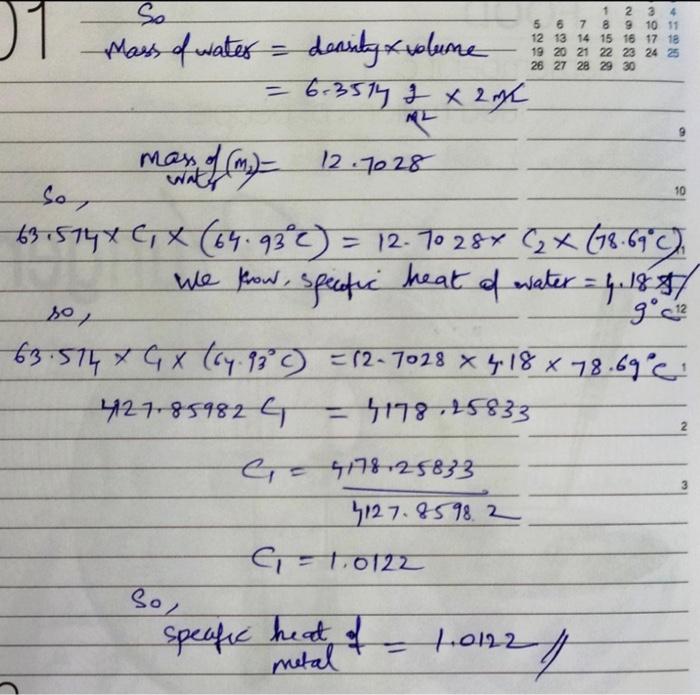 01
So
1 2 3 4
5 6 7 8 9 10 11
12 13 14 15 16 17 18
19 20 21 22 23 24 25
26 27 28 29 30
Mass of water = density x volume
= 6.3514 g/mL x 2 mL
9
mass of water (m₂) = 12.7028
10
So,
63.574 x C₁ x (64.93°C) = 12.7028 x C₂ x (78.69°C)
11
We know, specific heat of water = 4.18 J/g°C
12
so,
63.574 x C₁ x (64.93°C) = 12.7028 x 4.18 x 78.69°C
1
4127.85982 C₁ = 4178.25833
2
C₁ = 4178.25833 / 4127.8598 2
3
C₁ = 1.0122
So,
specific heat of metal = 1.0122 //